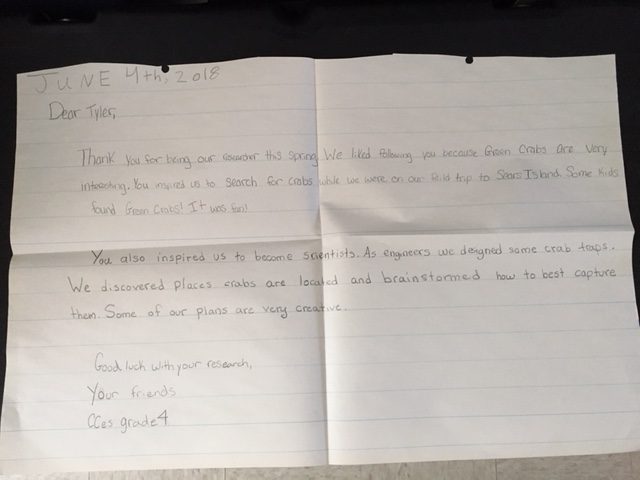 JUNE 4th, 2018
Dear Tyler,
Thank you for being our researcher this spring. We liked following you because Green Crabs are very
interesting. You inspired us to search for crabs while we were on our field trip to Sears Island. Some kids
found Green Crabs! It was fun!
You also inspired us to become scientists. As engineers we designed some crab traps.
We discovered places crabs are located and brainstormed how to best capture
them. Some of our plans are very creative.
Good luck with your research,
Your friends
CCes grade 4